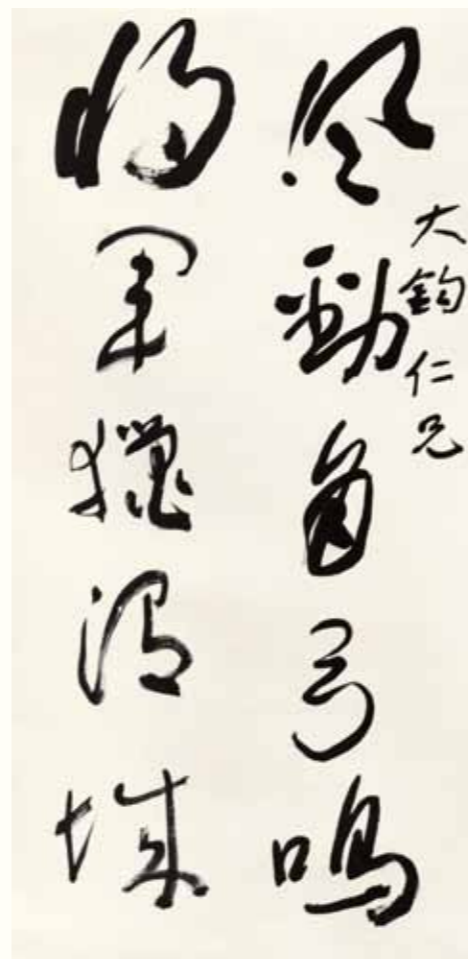 大鈞仁兄
風勁角弓鳴
將軍獵渭城